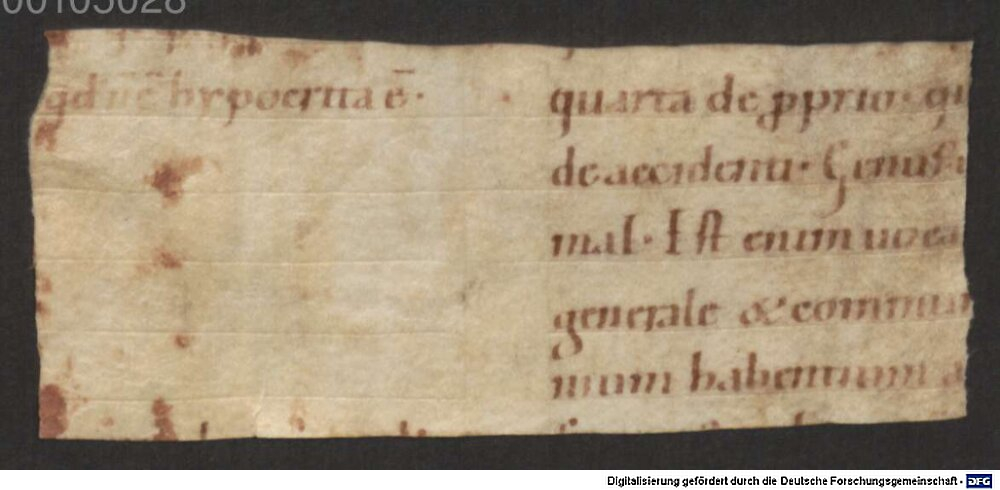 00105028
hypocrita ē·
quarta de ꝓprio· qu
de accidenti· Genus
mal· Est enim uoca
generale & commun
num habentium a
Digitalisierung gefördert durch die Deutsche Forschungsgemeinschaft - DFG